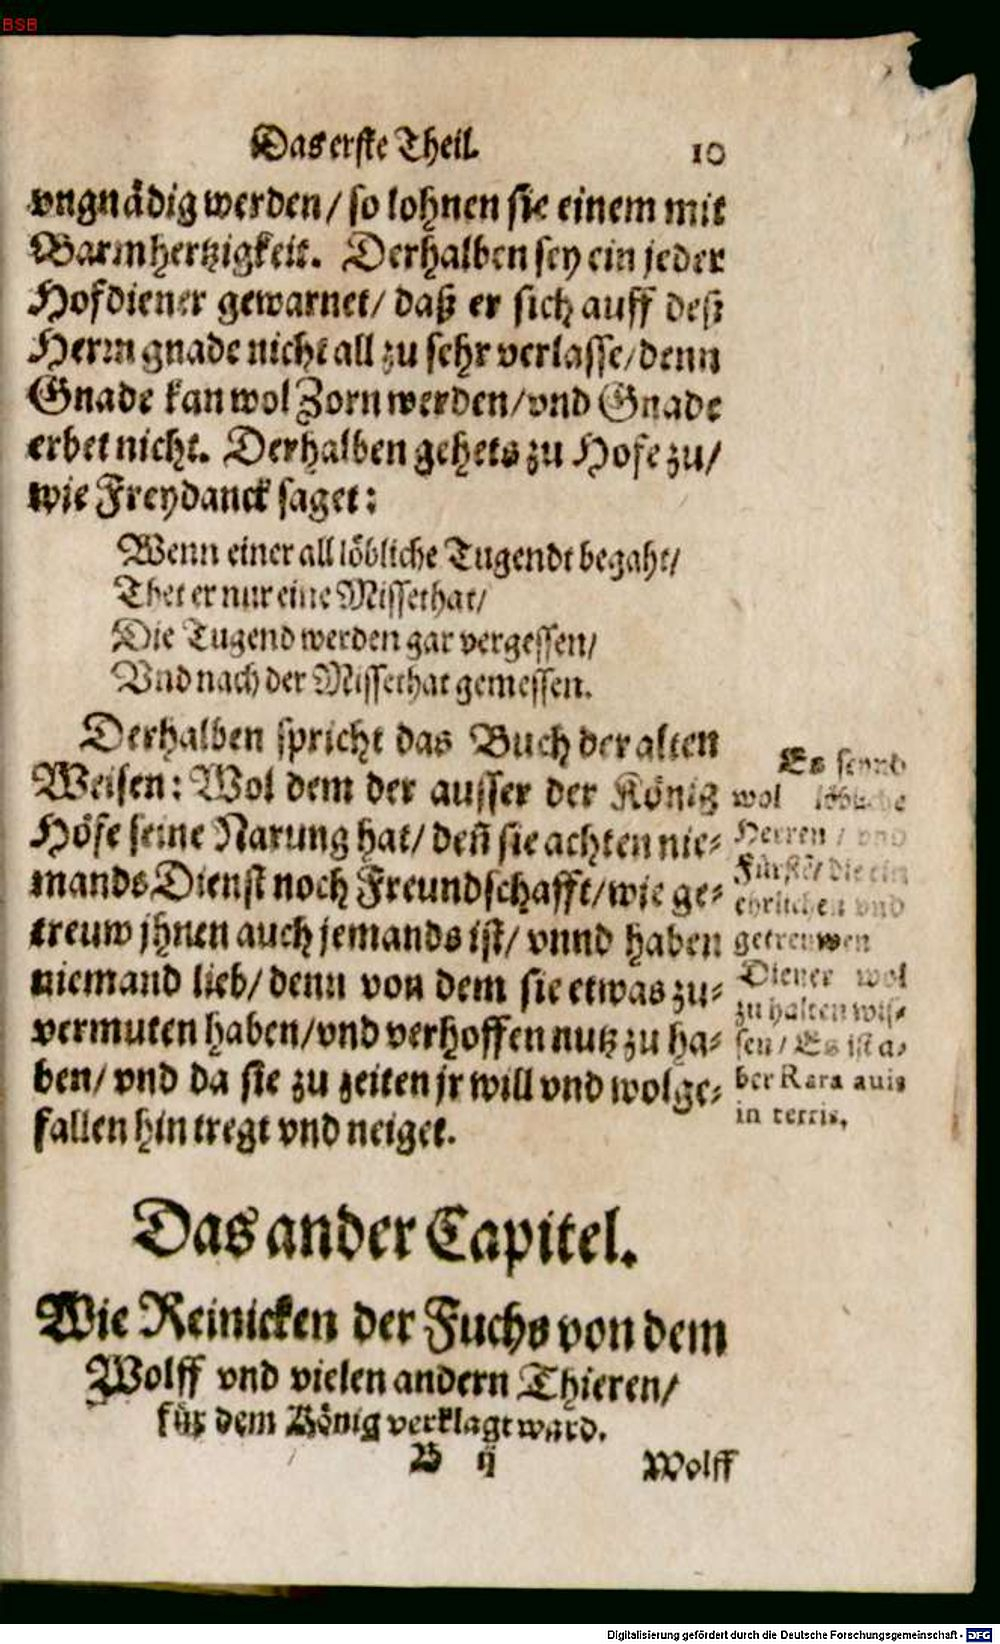 BSB
Das erste Theil. 10
vngnädig werden / so lohnen sie einem mit
Barmhertzigkeit. Derhalben sey ein jeder
Hofdiener gewarnet / daß er sich auff deß
Herrn gnade nicht all zu sehr verlasse / denn
Gnade kan wol Zorn werden / vnd Gnade
erbet nicht. Derhalben gehets zu Hofe zu /
wie Freydanck saget:
Wenn einer all löbliche Tugendt begaht /
Thet er nur eine Missethat /
Die Tugend werden gar vergessen /
Vnd nach der Missethat gemessen.
Derhalben spricht das Buch der alten
Weisen: Wol dem der ausser der König
Höfe seine Narung hat / deñ sie achten nie-
mands Dienst noch Freundschafft / wie ge-
treuw jhnen auch jemands ist / vnnd haben
niemand lieb / denn von dem sie etwas zu-
vermuten haben / vnd verhoffen nutz zu ha-
ben / vnd da sie zu zeiten jr will vnd wolge-
fallen hin tregt vnd neiget.
Es seynd
wol löbliche
Herren / vnd
Fürstē / die ein
ehrlichen vnd
getreuwen
Diener wol
zu halten wis-
sen / Es ist a-
ber Rara auis
in terris.
Das ander Capitel.
Wie Reinicken der Fuchs von dem
Wolff vnd vielen andern Thieren /
für dem König verklagt ward.
B ij Wolff
Digitalisierung gefördert durch die Deutsche Forschungsgemeinschaft - DFG